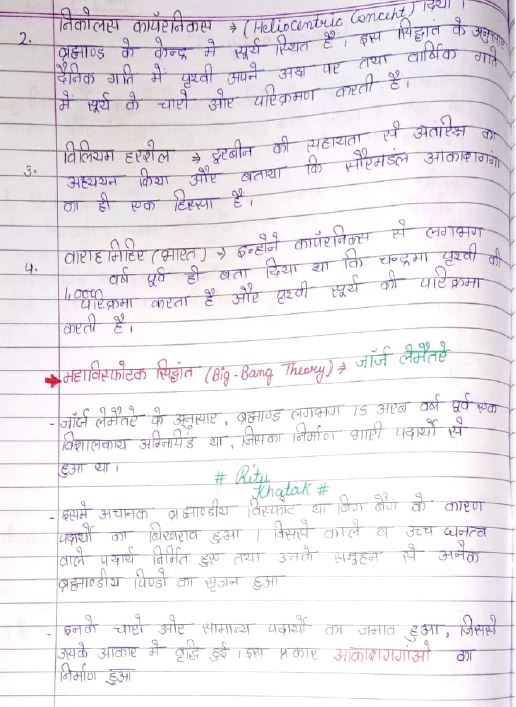 2. निकोलस कॉपरनिकस → (Heliocentric Concept) दिया।
ब्रह्माण्ड के केन्द्र में सूर्य स्थित है। इस सिद्धांत के अनुसार
दैनिक गति में पृथ्वी अपने अक्ष पर तथा वार्षिक गति
में सूर्य के चारो और परिक्रमण करती है।
3. विलियम हरशेल → दूरबीन की सहायता से अंतरिक्ष का
अध्ययन किया और बताया कि सौरमंडल आकाशगंगा
का ही एक हिस्सा है।
4. वाराह मिहिर (भारत) → इन्होंने कॉपरनिक्स से लगभग
1,000 वर्ष पूर्व ही बता दिया था कि चन्द्रमा पृथ्वी की
परिक्रमा करता है और पृथ्वी सूर्य की परिक्रमा
करती है।
→ महाविस्फोटक सिद्धांत (Big-Bang Theory) → जॉर्ज लेमैतरे
- जॉर्ज लेमैतरे के अनुसार, ब्रह्माण्ड लगभग 15 अरब वर्ष पूर्व एक
विशालकाय अग्निपिंड था, जिसका निर्माण भारी पदार्थो से
हुआ था।
# Ritu
Khatak #
- इसमे अचानक ब्रह्माण्डीय विस्फोट या बिग बैंग के कारण
पदार्थो का बिखराव हुआ। जिससे काले व उच्च घनत्व
वाले पदार्थ निर्मित हुए तथा उनके समूहन से अनेक
ब्रह्माण्डीय पिण्डो का सृजन हुआ
- इनके चारो और सामान्य पदार्थो का जमाव हुआ, जिससे
उसके आकार में वृद्धि हुई। इस प्रकार आकाशगंगाओ का
निर्माण हुआ